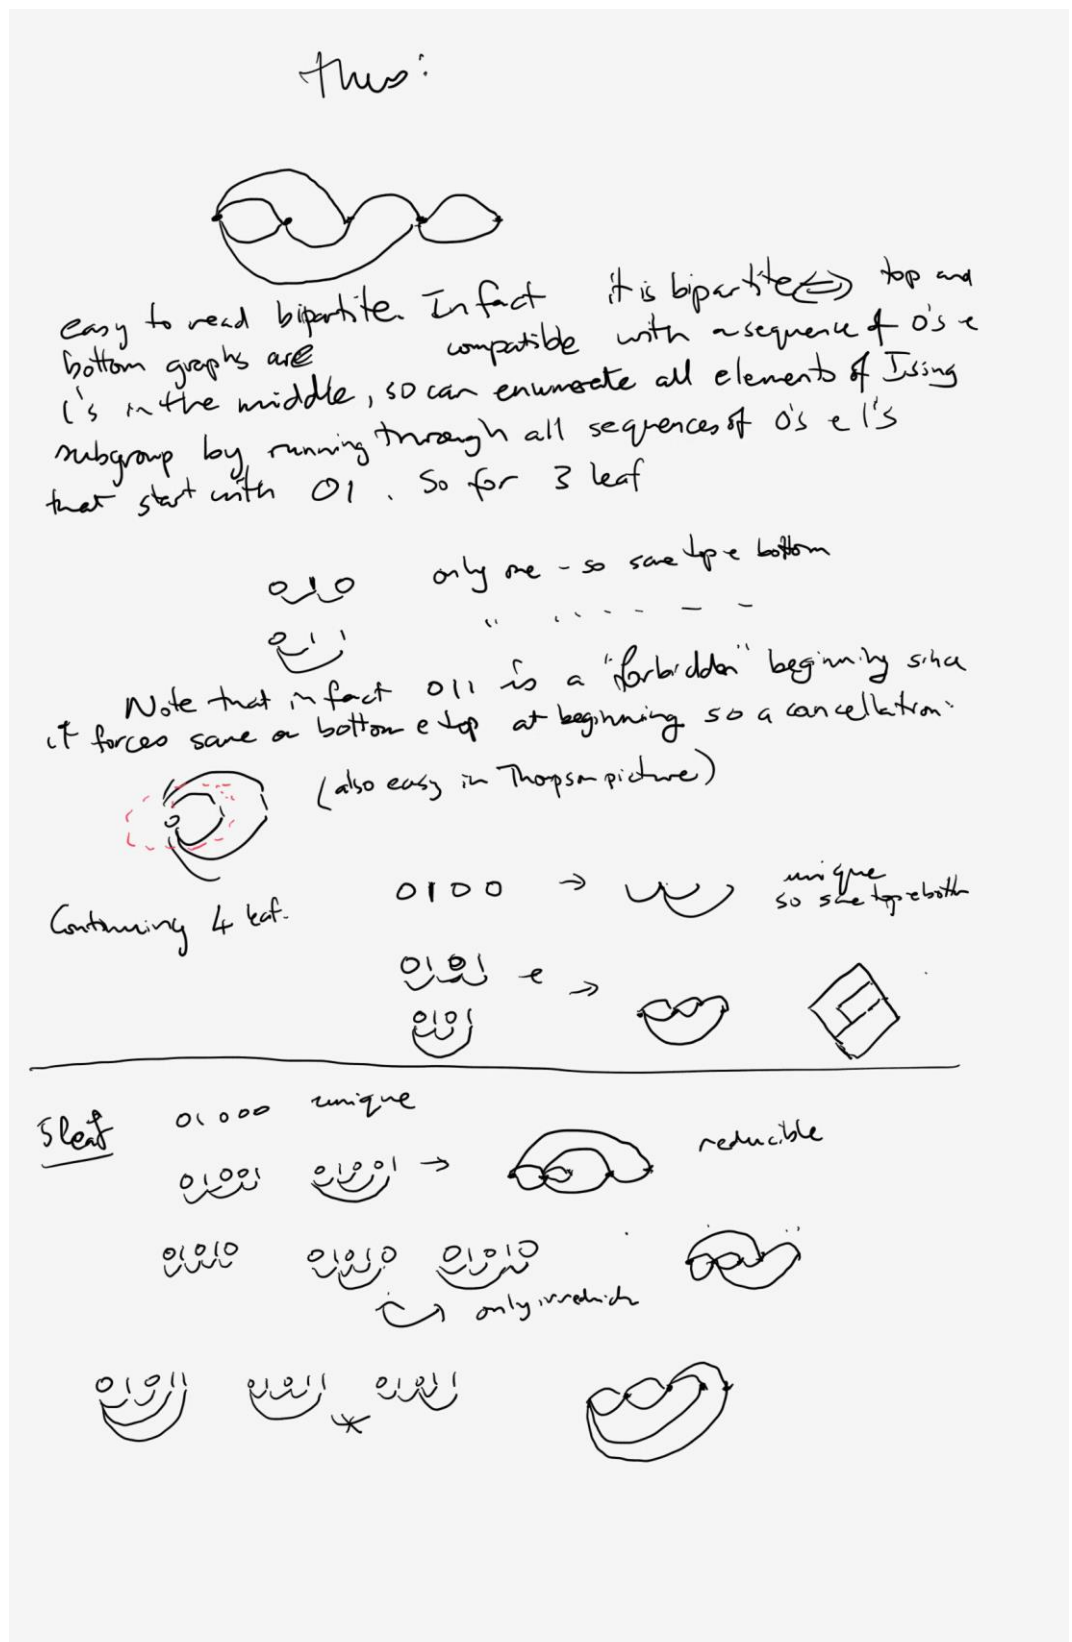 thus:
easy to read bipartite. In fact it is bipartite ⇔ top and
bottom graphs are compatible with a sequence of 0's e
1's in the middle, so can enumerate all elements of Ising
subgroup by running through all sequences of 0's e 1's
that start with 01. So for 3 leaf
010 only one - so same top e bottom
011 "
Note that in fact 011 is a "forbidden" beginning since
it forces same on bottom e top at beginning so a cancellation:
(also easy in Thopson picture)
Continuing 4 leaf. 0100 → unique
so same top e bottom
0101 e →
0101
5 leaf 01000 unique
01001 01001 → reducible
01010 01010 01010
only irreducible
01011 01011 01011
*